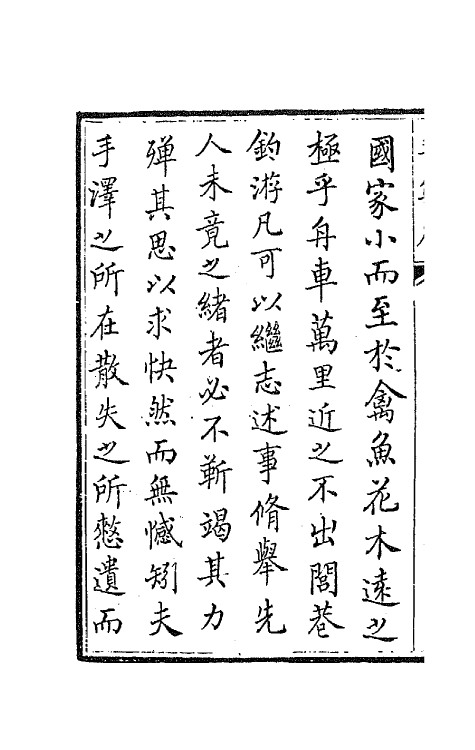 國家小而至於禽魚花木遠之
極乎舟車萬里近之不出閭巷
釣游凡可以繼志述事脩舉先
人未竟之緒者必不靳竭其力
殫其思以求快然而無憾矧夫
手澤之所在散失之所憖遺而